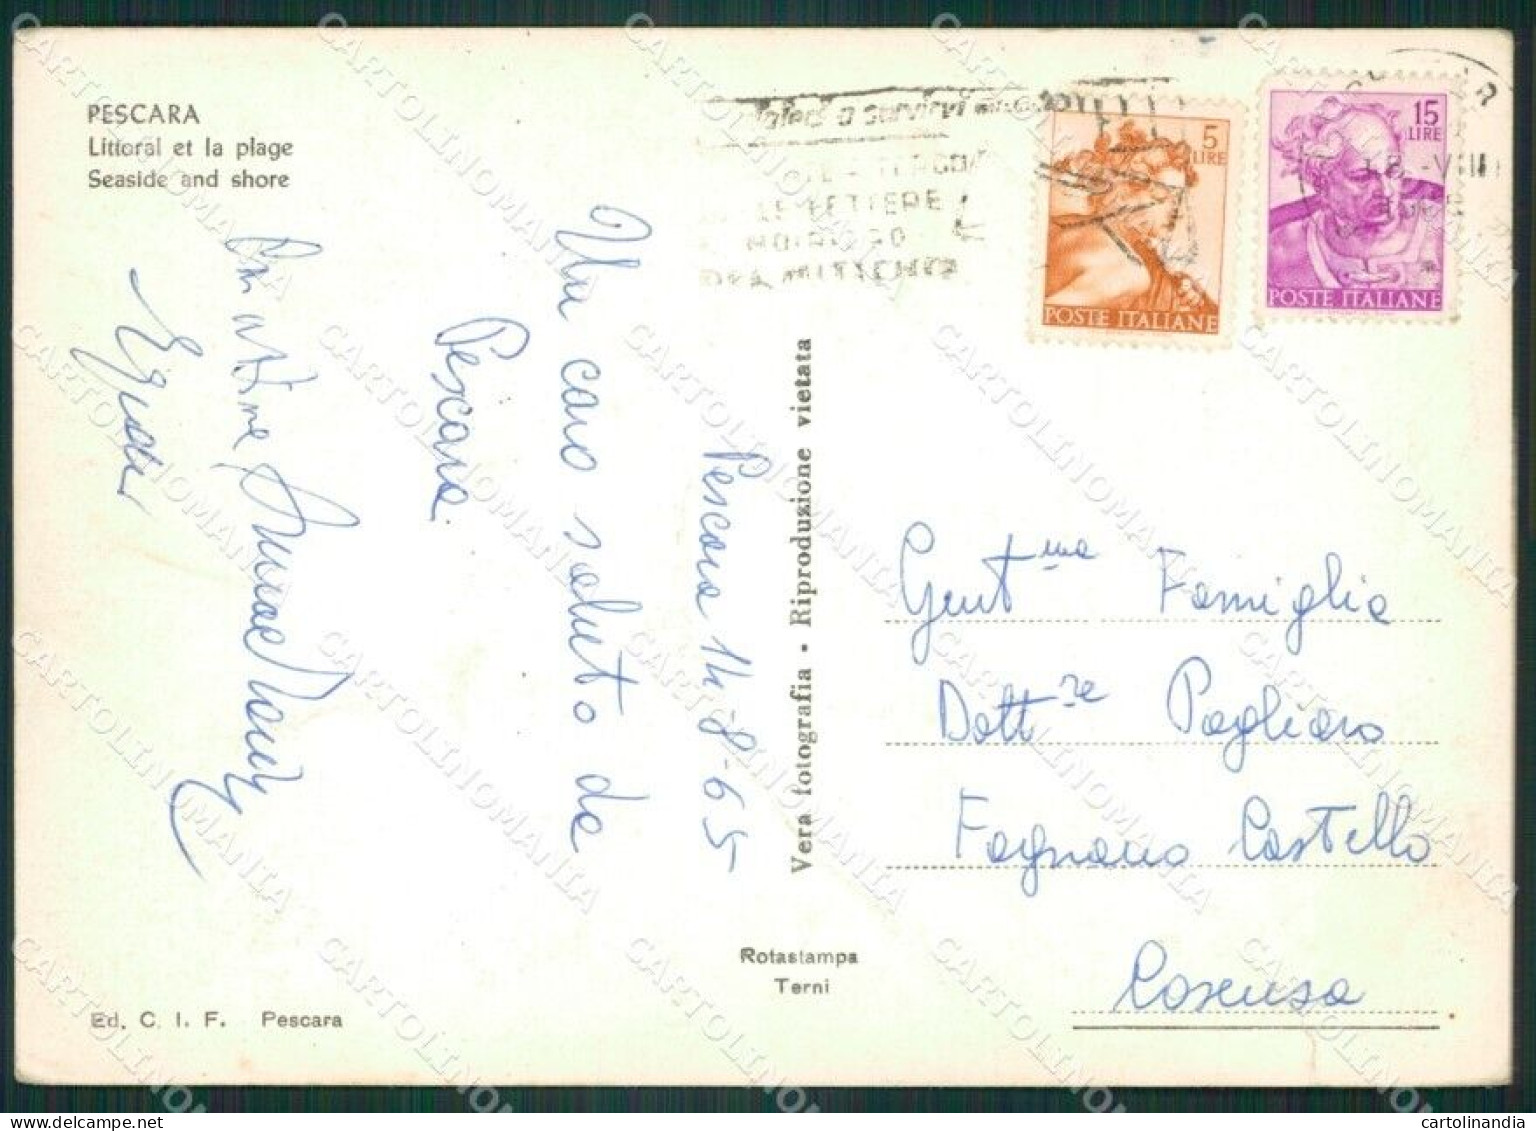 PESCARA
Littoral et la plage
Seaside and shore
Pescara 14-8-65
Un caro saluto da
Pescara.
5
LIRE
POSTE ITALIANE
15
LIRE
POSTE ITALIANE
Vera fotografia • Riproduzione vietata
Gent.ma Famiglia
Dott.re Pagliaro
Fagnano Castello
Cosenza
Rotastampa
Terni
Ed. C. I. F. Pescara
CARTOLINOMANIA
www.delcampe.net
cartolinandia